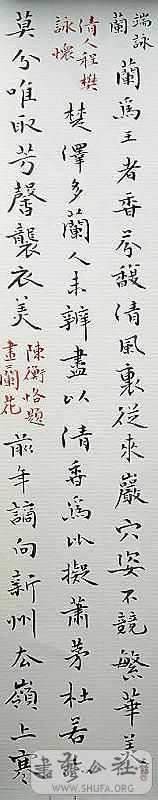 端詠蘭
蘭為王者香芬馥清風裏從來巖穴姿不競繁華美
清人程樊詠懷
楚澤多蘭人未辨盡以清香為比擬蕭茅杜若亦
莫分唯取芳馨襲衣美
陳衡恪題畫蘭花
前年謫向新州去嶺上寒
書藝公社
WWW.SHUFA.ORG